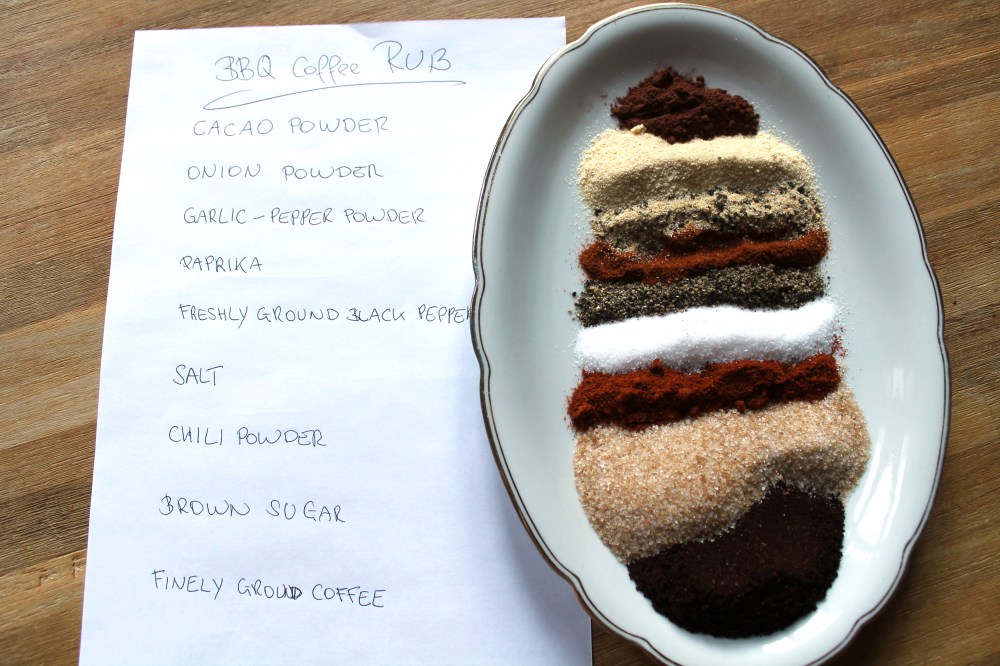 BBQ Coffee RUB
CACAO POWDER
ONION POWDER
GARLIC-PEPPER POWDER
PAPRIKA
FRESHLY GROUND BLACK PEPPER
SALT
CHILI POWDER
BROWN SUGAR
FINELY GROUD COFFEE